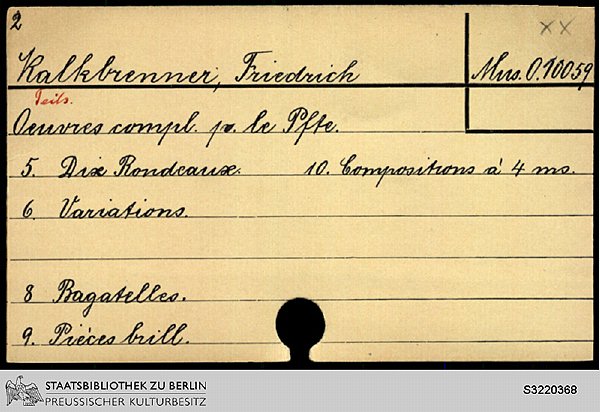 2
XX
Kalkbrenner, Friedrich
Mus. O. 10059
Teils.
Oeuvres compl. p. le Pfte.
5. Dix Rondeaux. 10. Compositions á 4 ms.
6. Variations.
8 Bagatelles.
9. Piéces brill.
STAATSBIBLIOTHEK ZU BERLIN
PREUSSISCHER KULTURBESITZ
S3220368